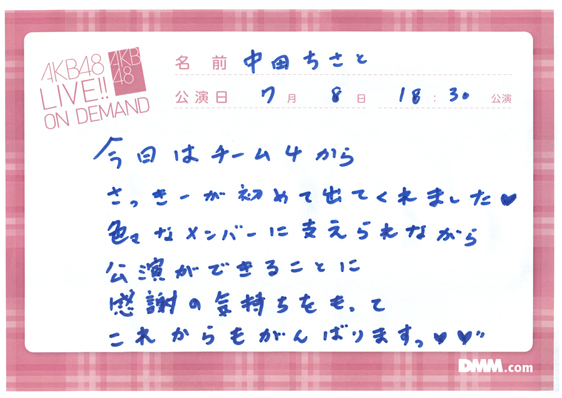 AKB48
LIVE!!
ON DEMAND
AKB
48
名前 中田ちさと
公演日 7月 8日 18:30 公演
今日はチーム4から
さっきーが初めて出てくれました♥
色々なメンバーに支えられながら
公演ができることに
感謝の気持ちをもって
これからもがんばりますっ♥♥"
DMM.com